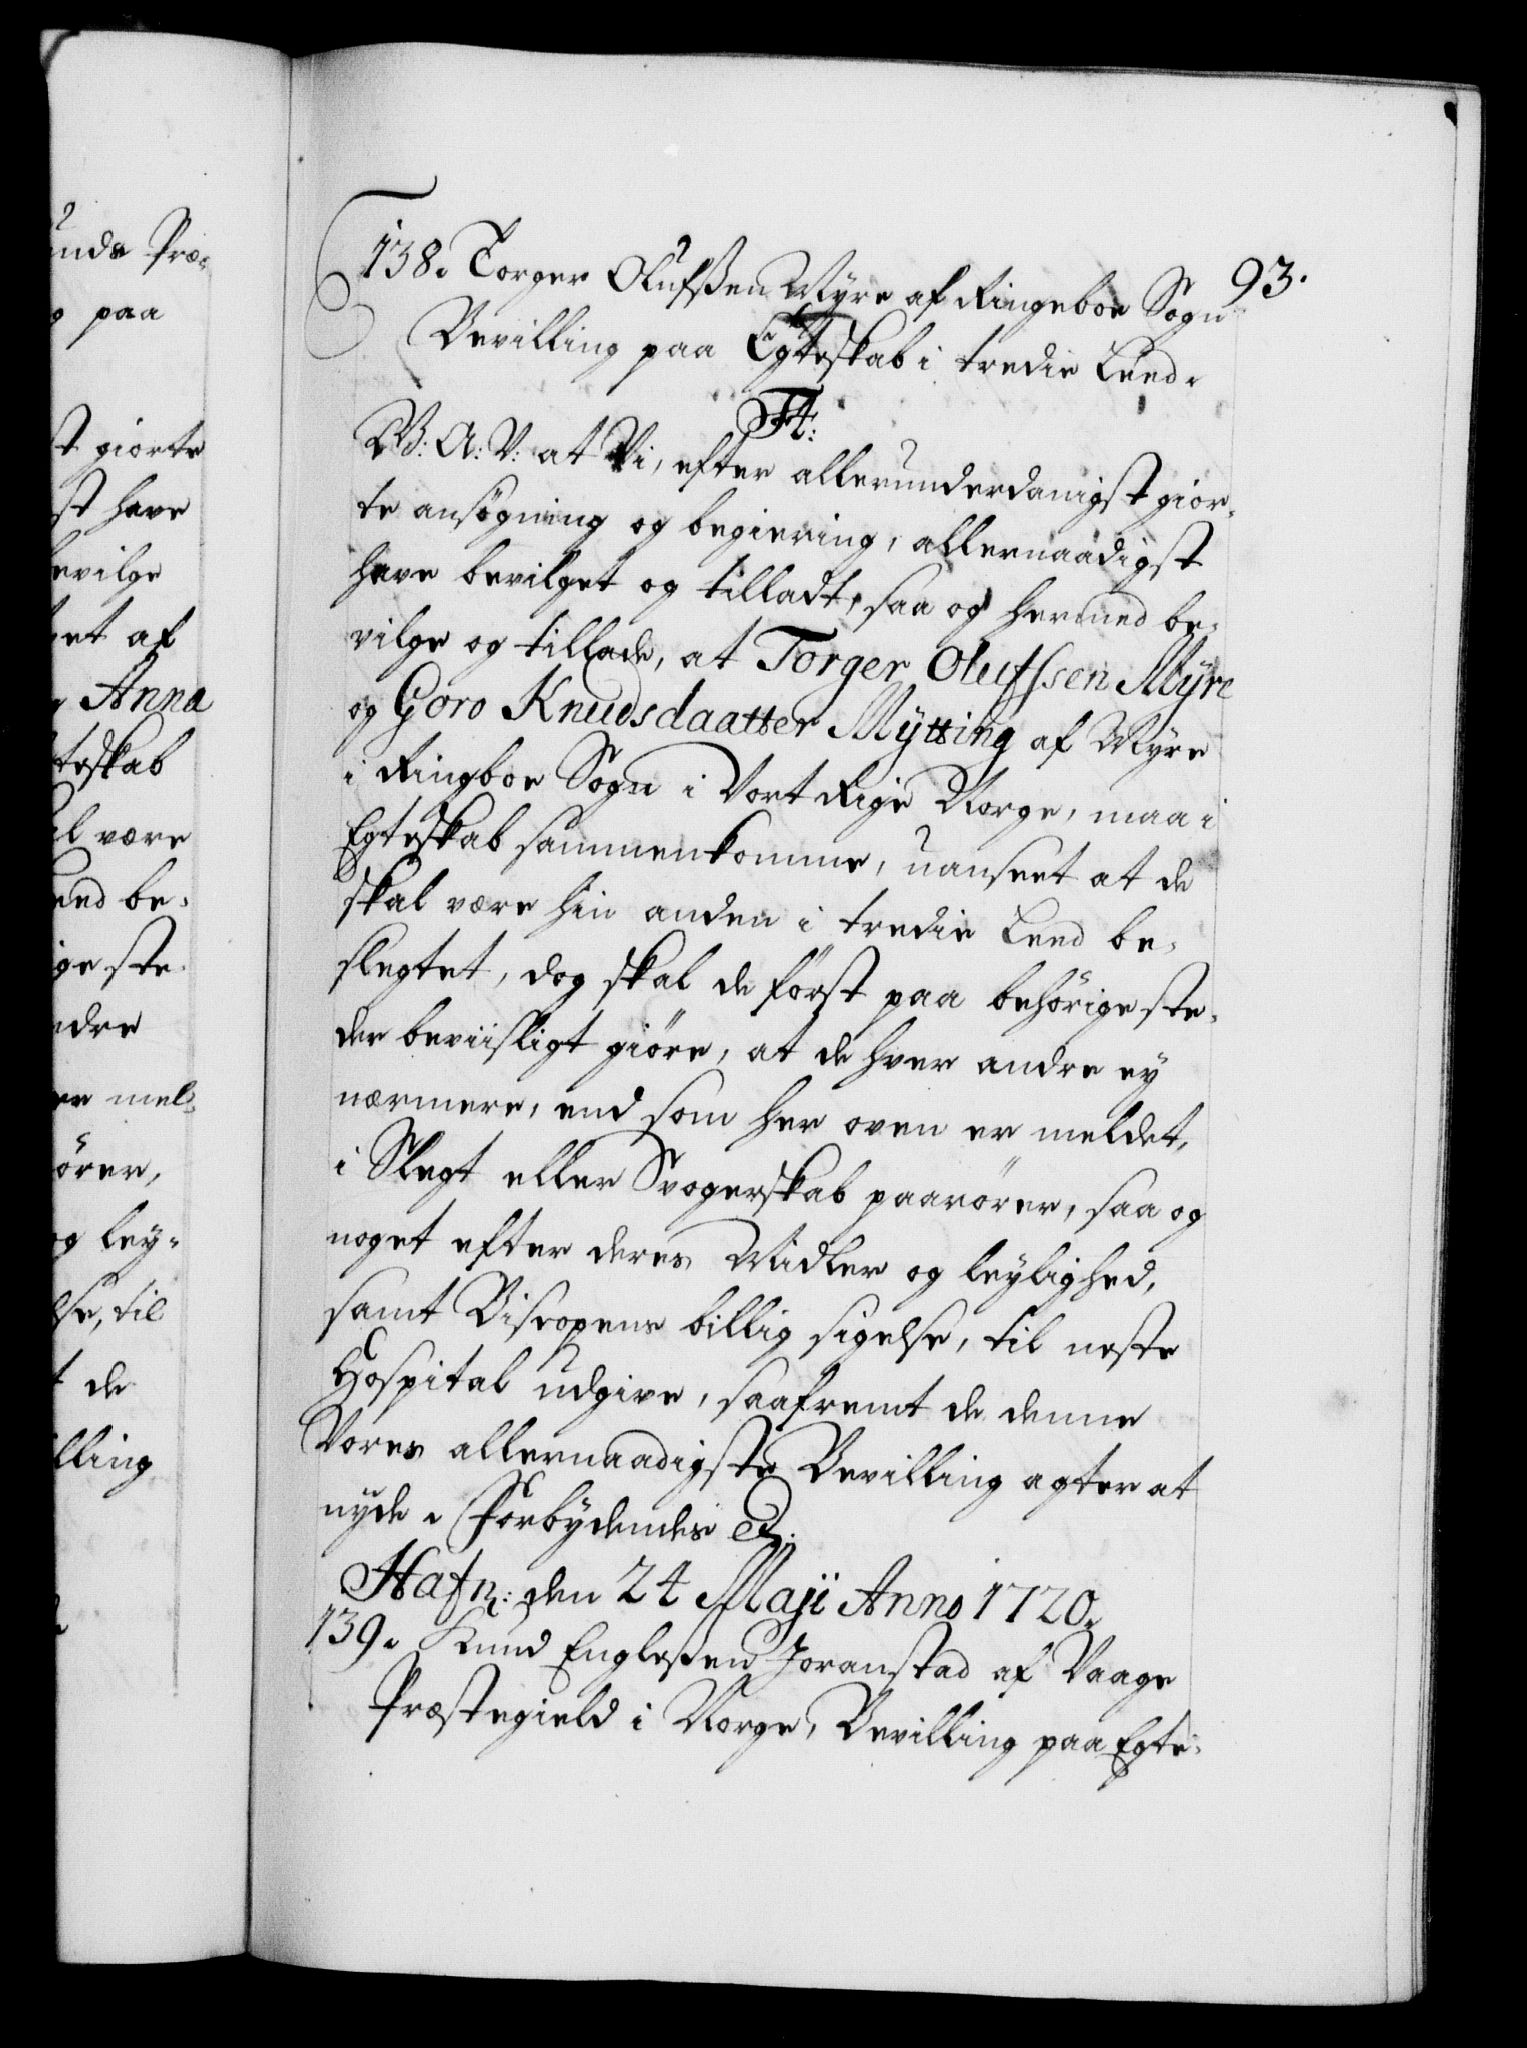 unds Præ-
g paa
st giorte
st have
bevilge
het af
g Anna
teskab
al være
eed be-
ige ste-
ndre
er mel-
örer,
og ley-
lse, til
t de
lling
93.
138. Torger Olufssen Myre af Ringeboe Sogn
Bevilling paa Egteskab i tredie Leed.
F4:
W: A: V: at Vi, efter allerunderdanigst gior-
te ansögning og begiering, allernaadigst
have bevilget og tilladt, saa og hermed be-
vilge og tillade, at Torger Olufssen Myre
og Goro Knudsdaatter Mytting af Myre
i Ringboe Sogn i Vort Rige Norge, maa i
Egteskab sammenkomme, uanseet at de
skal være hin anden i tredie Leed be-
slegtet, dog skal de först paa behörige ste-
der beviisligt giöre, at de hver andre ey
nærmere, end som her oven er meldet,
i Slegt eller Svogerskab paarörer, saa og
noget efter deres Midler og leylighed,
samt Biscopens billig sigelse, til neste
Hospital udgive, saafremt de denne
Vores allernaadigste Bevilling agter at
nyde. Forbydendes &:
Hafn: den 24 Maji Anno 1720.
139. Knud Englessen Joranstad af Vaage
Præstegield i Norge, Bevilling paa Egte-